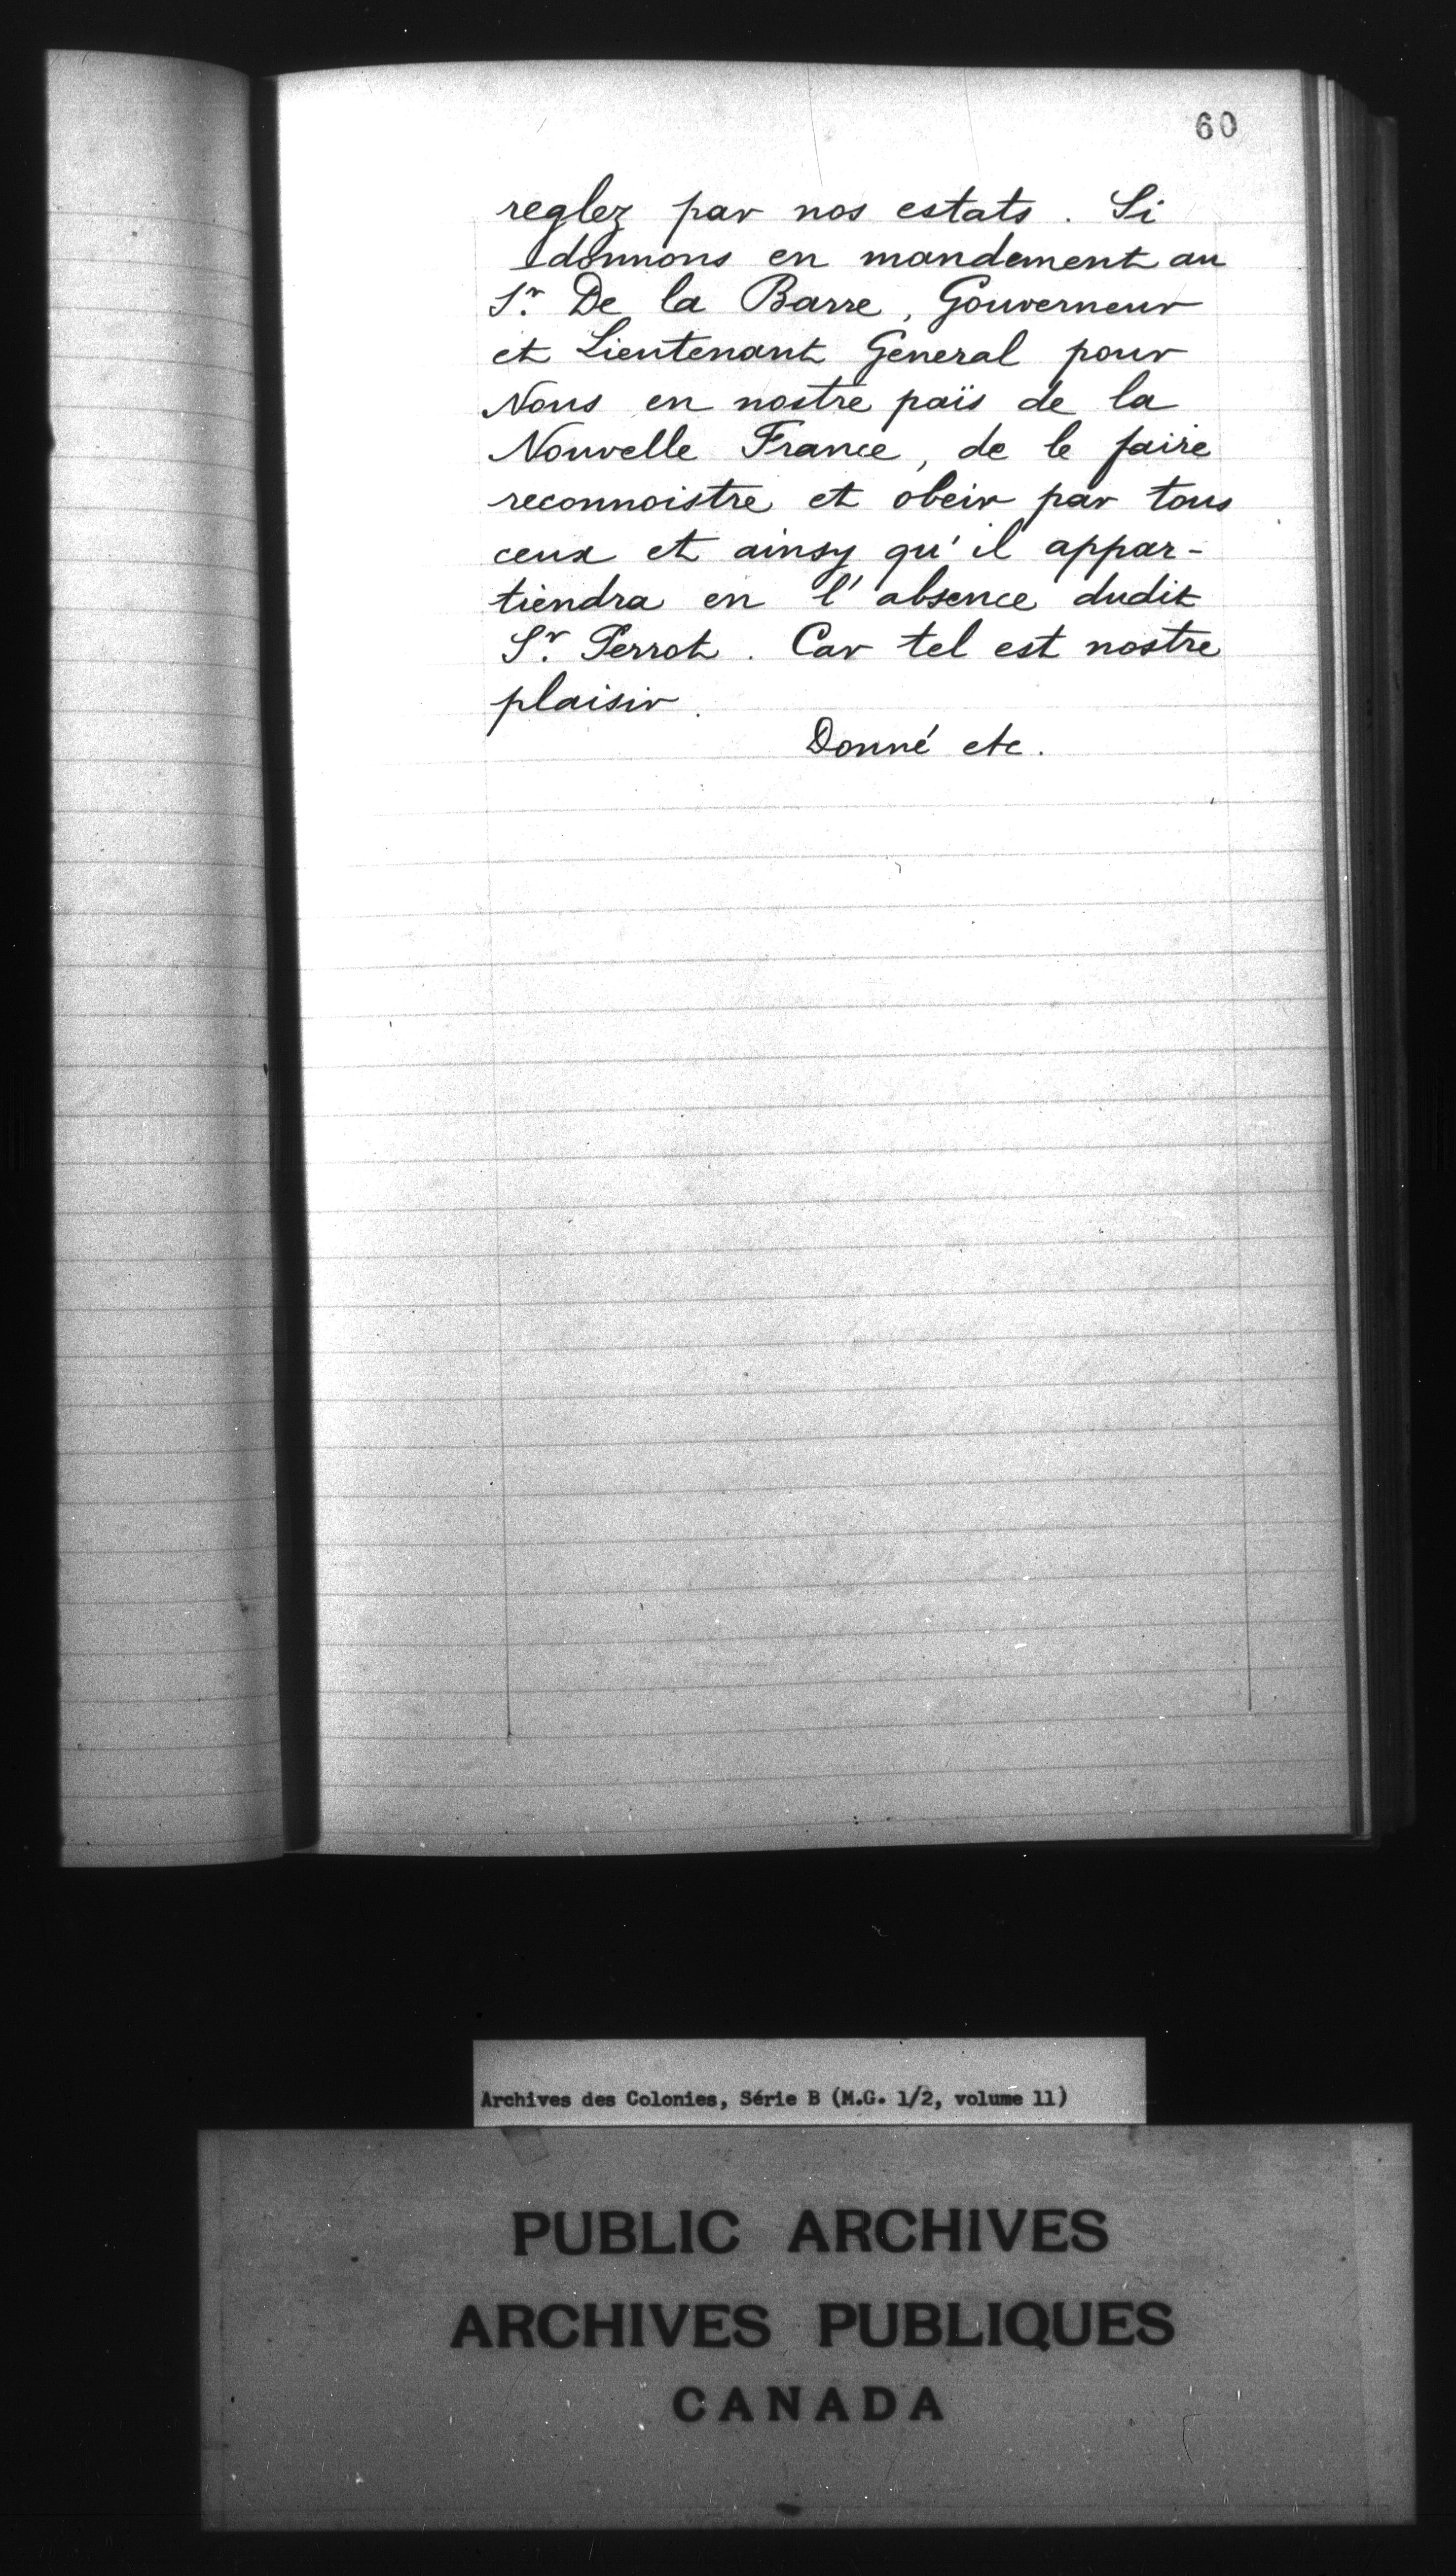 60
reglez par nos estats. Si
donnons en mandement au
Sr. De la Barre, Gouverneur
et Lieutenant General pour
Nous en nostre païs de la
Nouvelle France, de le faire
reconnoistre et obeir par tous
ceux et ainsy qu'il appar-
tiendra en l'absence dudit
Sr. Perrot. Car tel est nostre
plaisir.
Donné etc.
Archives des Colonies, Série B (M.G. 1/2, volume 11)
PUBLIC ARCHIVES
ARCHIVES PUBLIQUES
CANADA